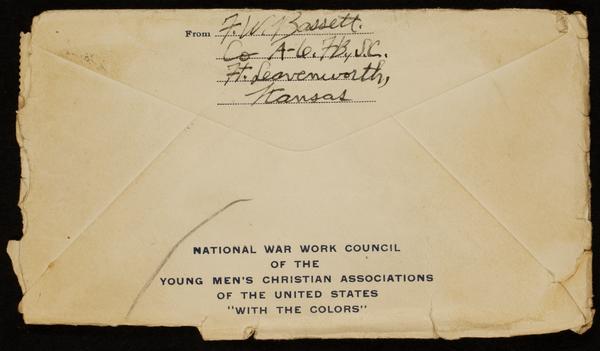 From F. W. Bassett.
Co A-6. F.B., S.C.
Ft. Leavenworth,
Kansas
NATIONAL WAR WORK COUNCIL
OF THE
YOUNG MEN'S CHRISTIAN ASSOCIATIONS
OF THE UNITED STATES
"WITH THE COLORS"